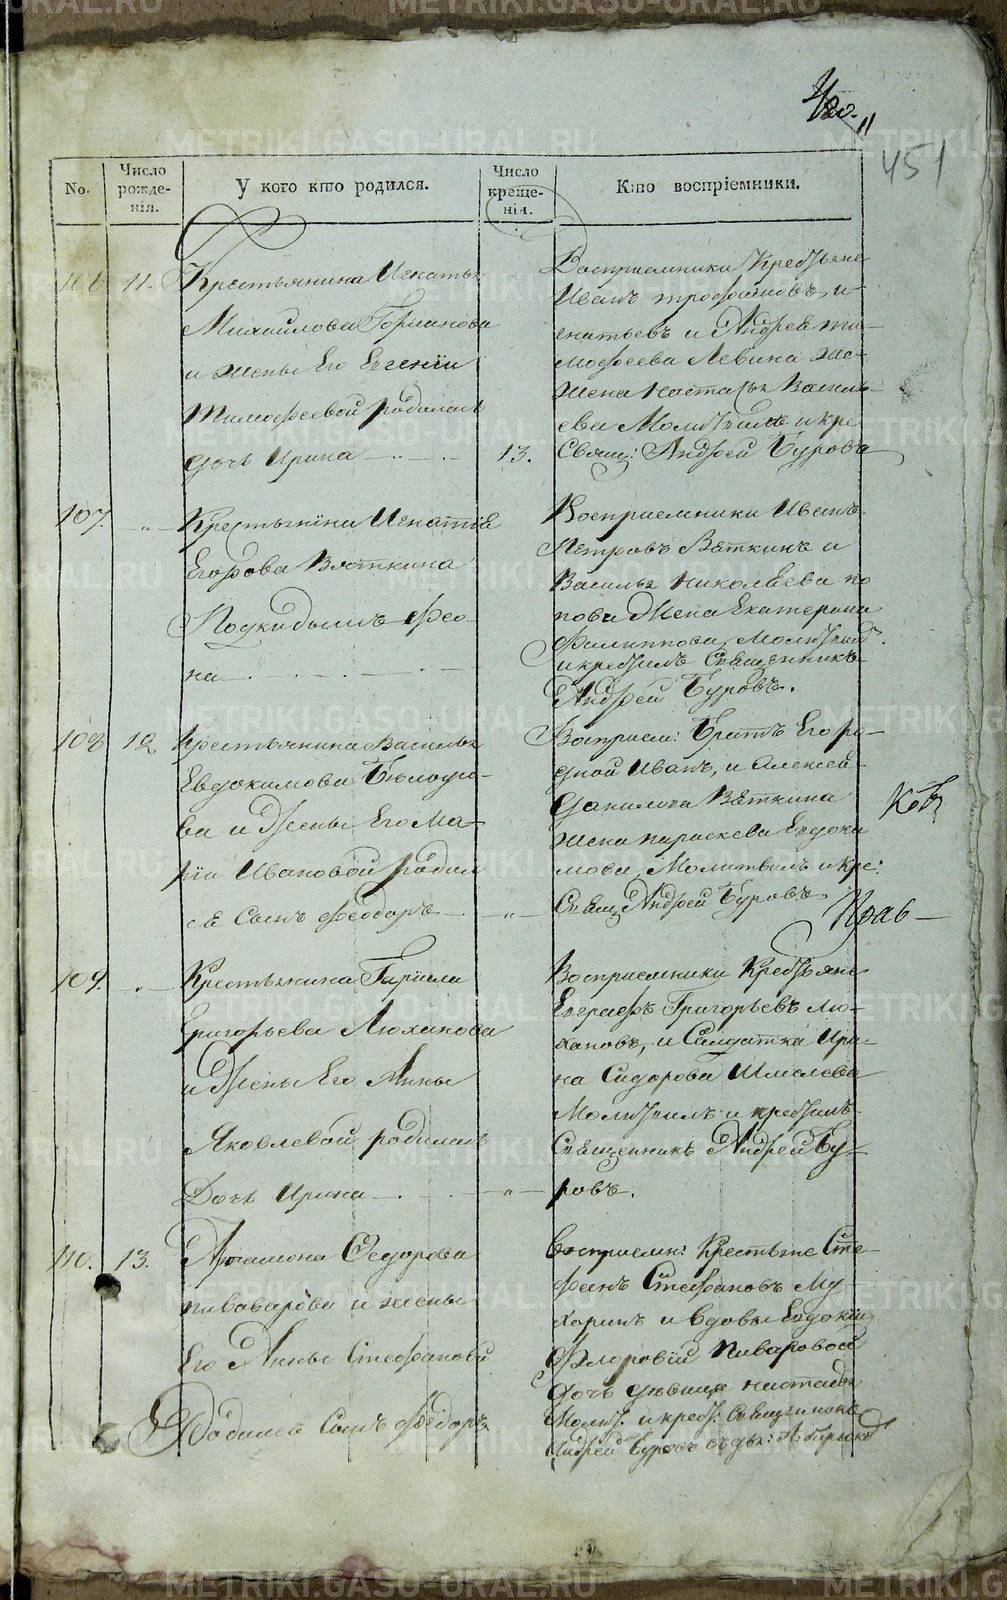 451
No.
Число рожде-нія.
У кого кто родился.
Число креще-нія.
Кто воспріемники.
106 11. Крестьянина Игнатья
Михайлова
и жены Его Евгеніи
Тимофеевой родилась
дочь Ирина 13.
Восприемники Крестьяне
Иванъ Трофимовъ И-
гнатьевъ и Андрея Ти-
мофеева Левина
жена Настасья Василь-
ева Молитвилъ и кре
Свящ: Андрей Буровъ
107. Крестьянина Игнатія
Егорова Вяткина
Подкидышъ Фео-
на
Восприемники Иванъ
Петровъ Вяткинъ и
Василья Николаева По
пова Жена Екатерина
Филиппова, Молитвил.
и крестилъ Священникъ
Андрей Буровъ.
108 12 Крестьянина Василья
Евдокимова
ва и Жены Его Ма-
ріи Ивановой родил
ся Сынъ Феодоръ
Восприем: Братъ Его ро-
дной Иванъ, и Алексея
Данилова Вяткина
жена Параскева Евдоки
мова, Молитвилъ и кре:
Свящ Андрей Буровъ
109. Крестьянина Гаріила
Григорьева Люханова
и Жены Его Анны
Яковлевой родилась
Дочь Ирина
Восприемники Крестьяне
Евграфъ Григорьевъ Лю-
хановъ, и Салдатка Ири-
на Сидорова Шмелева
Молитвилъ и крестилъ
Священникъ Андрей Бу-
ровъ.
110. 13. Артамона Федорова
Пивоварова и жены
Его Анны Стефановой
Родился Сынъ Федоръ
Восприемн: Крестьяне Сте-
фанъ Стефановъ Му
харинъ и вдовы Евдокіи
Пиваровой
дочь девица Настасья
Молит. и крест. Священникъ
Андрей Буровъ
METRIKI.GASO-URAL.RU